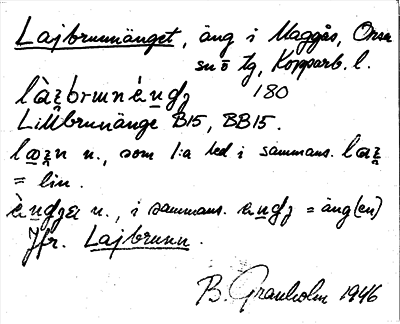 Lajbrunnänget, äng i Maggås, Orsa
sn o tg, Kopparb. l.
180
Lillbrunnänge B15, BB15.
n., som 1:a led i sammans.
= lin.
n., i sammans. = äng(en)
Jfr. Lajbrunn.
B. Granholm 1946